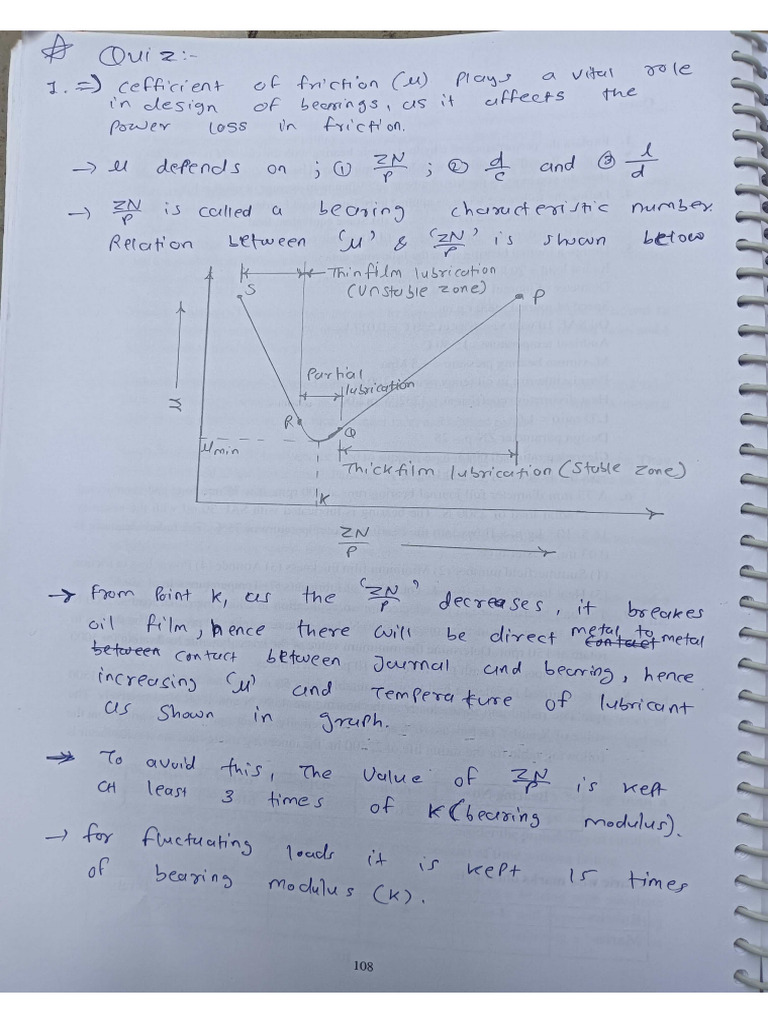 ☆ Quiz:-
1. => cefficient of friction (μ) plays a vital role
in design of bearings, as it affects the
power loss in friction.
→ μ depends on ; ① ZN/P ; ② d/c and ③ l/d
→ ZN/P is called a bearing characteristic number.
Relation between 'μ' & 'ZN/P' is shown below
Thinfilm lubrication
(Unstable zone)
S
P
μ
Partial
lubrication
R
Q
μmin
Thickfilm lubrication (Stable zone)
K
ZN/P
→ From Point K, as the 'ZN/P' decreases, it breakes
oil film, hence there will be direct metal to contact metal
between contact between Journal and bearing, hence
increasing 'μ' and Temperature of lubricant
as shown in graph.
→ To avoid this, The value of ZN/P is kept
at least 3 times of K (bearing modulus).
→ for fluctuating loads it is kept 15 times
of bearing modulus (K).
108